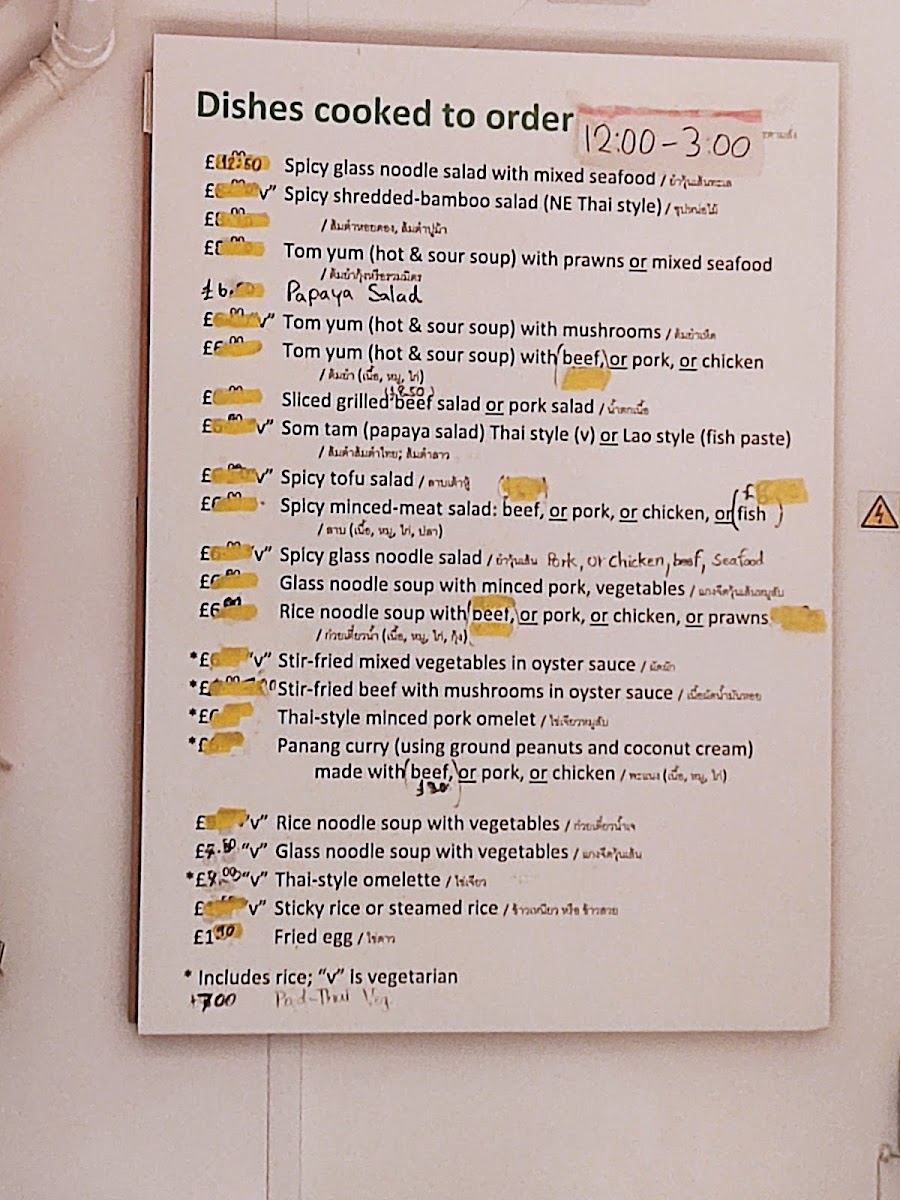 Dishes cooked to order
12:00 - 3:00
£12:50 Spicy glass noodle salad with mixed seafood / ยำวุ้นเส้นทะเล
v" Spicy shredded-bamboo salad (NE Thai style) / ซุปหน่อไม้
/ ส้มตำหอยดอง, ส้มตำปูม้า
Tom yum (hot & sour soup) with prawns or mixed seafood
/ ต้มยำกุ้งหรือรวมมิตร
£6. Papaya Salad
"v" Tom yum (hot & sour soup) with mushrooms / ต้มยำเห็ด
Tom yum (hot & sour soup) with (beef,) or pork, or chicken
/ ต้มยำ (เนื้อ, หมู, ไก่)
(£8.50)
Sliced grilled beef salad or pork salad / น้ำตกเนื้อ
v" Som tam (papaya salad) Thai style (v) or Lao style (fish paste)
/ ส้มตำส้มตำไทย; ส้มตำลาว
v" Spicy tofu salad / ลาบเต้าหู้
Spicy minced-meat salad: beef, or pork, or chicken, or (fish)
/ ลาบ (เนื้อ, หมู, ไก่, ปลา)
"v" Spicy glass noodle salad / ยำวุ้นเส้น Pork, or chicken, beef, Seafood
Glass noodle soup with minced pork, vegetables / แกงจืดวุ้นเส้นหมูสับ
Rice noodle soup with (beef,) or pork, or chicken, or prawns
/ ก๋วยเตี๋ยวน้ำ (เนื้อ, หมู, ไก่, กุ้ง)
* "v" Stir-fried mixed vegetables in oyster sauce / ผัดผัก
* Stir-fried beef with mushrooms in oyster sauce / เนื้อผัดน้ำมันหอย
* Thai-style minced pork omelet / ไข่เจียวหมูสับ
* Panang curry (using ground peanuts and coconut cream)
made with (beef,) or pork, or chicken / พะแนง (เนื้อ, หมู, ไก่)
"v" Rice noodle soup with vegetables / ก๋วยเตี๋ยวน้ำเจ
"v" Glass noodle soup with vegetables / แกงจืดวุ้นเส้น
* "v" Thai-style omelette / ไข่เจียว
v" Sticky rice or steamed rice / ข้าวเหนียว หรือ ข้าวสวย
£1 Fried egg / ไข่ดาว
* Includes rice; "v" is vegetarian
Pad-Thai Veg.